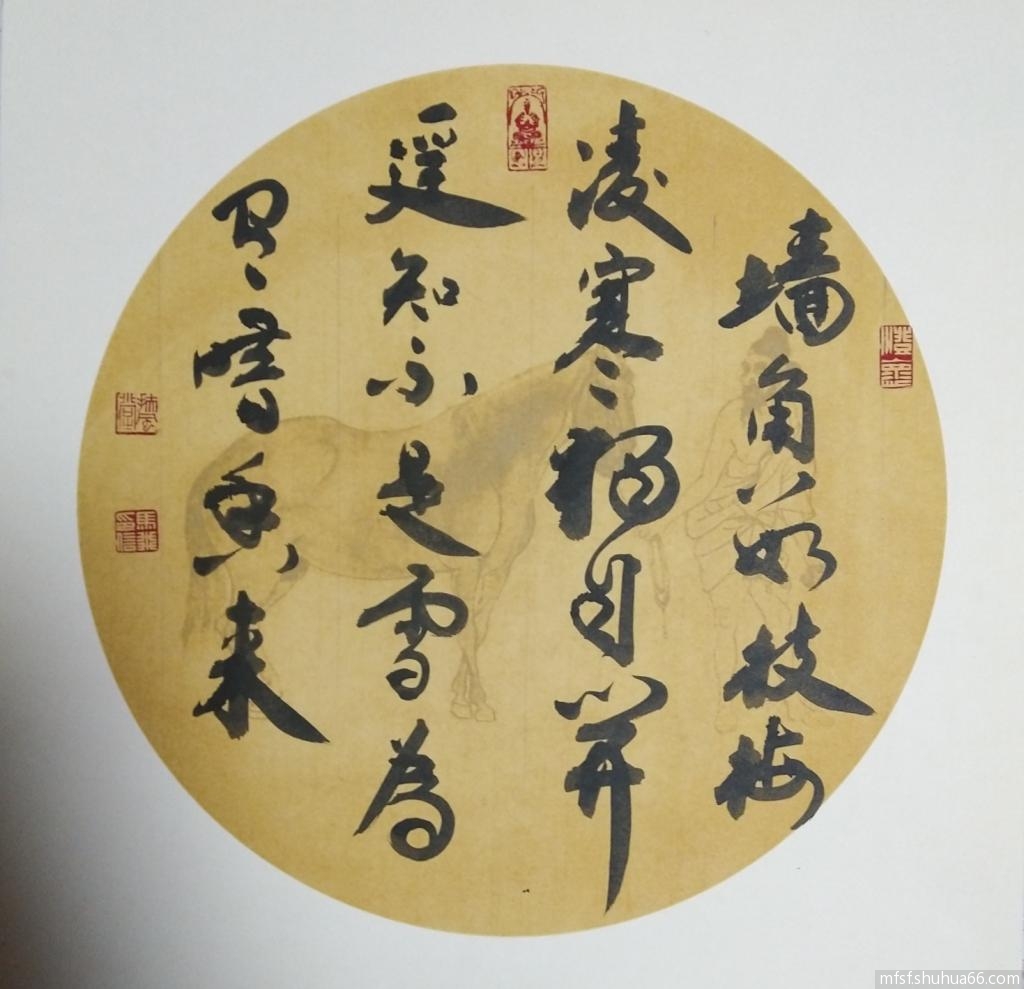 墙角数枝梅
凌寒獨自開
遥知不是雪為
有暗香来
mfsf.shuhua66.com